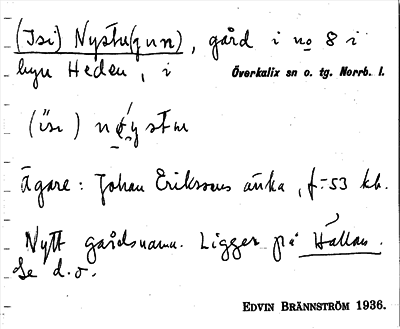 (Isi) Nystu(gun), gård i no 8 i
byn Heden, i Överkalix sn o. tg. Norrb. l.
(isi) nystu
Ägare: Johan Erikssons änka, f. 53 kb.
Nytt gårdsnamn. Ligger på Hállan.
Se d.o.
EDVIN BRÄNNSTRÖM 1936.